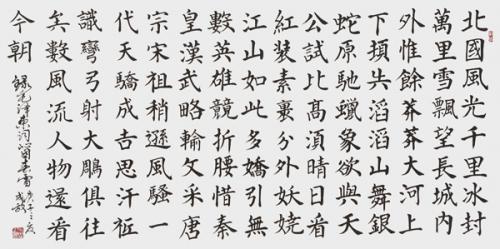 北國風光千里冰封
萬里雪飄望長城內
外惟餘莽莽大河上
下頓失滔滔山舞銀
蛇原馳蠟象欲與天
公試比高須晴日看
紅裝素裹分外妖嬈
江山如此多嬌引無
數英雄競折腰惜秦
皇漢武略輸文采唐
宗宋祖稍遜風騷一
代天驕成吉思汗祗
識彎弓射大鵰俱往
矣數風流人物還看
今朝
錄毛澤東詞沁園春雪